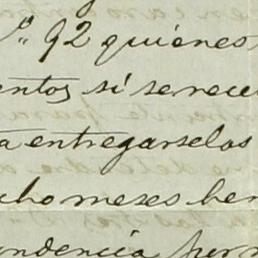 92 quienes
entos si se nece
a entregarselos
cho meses han
ndencia